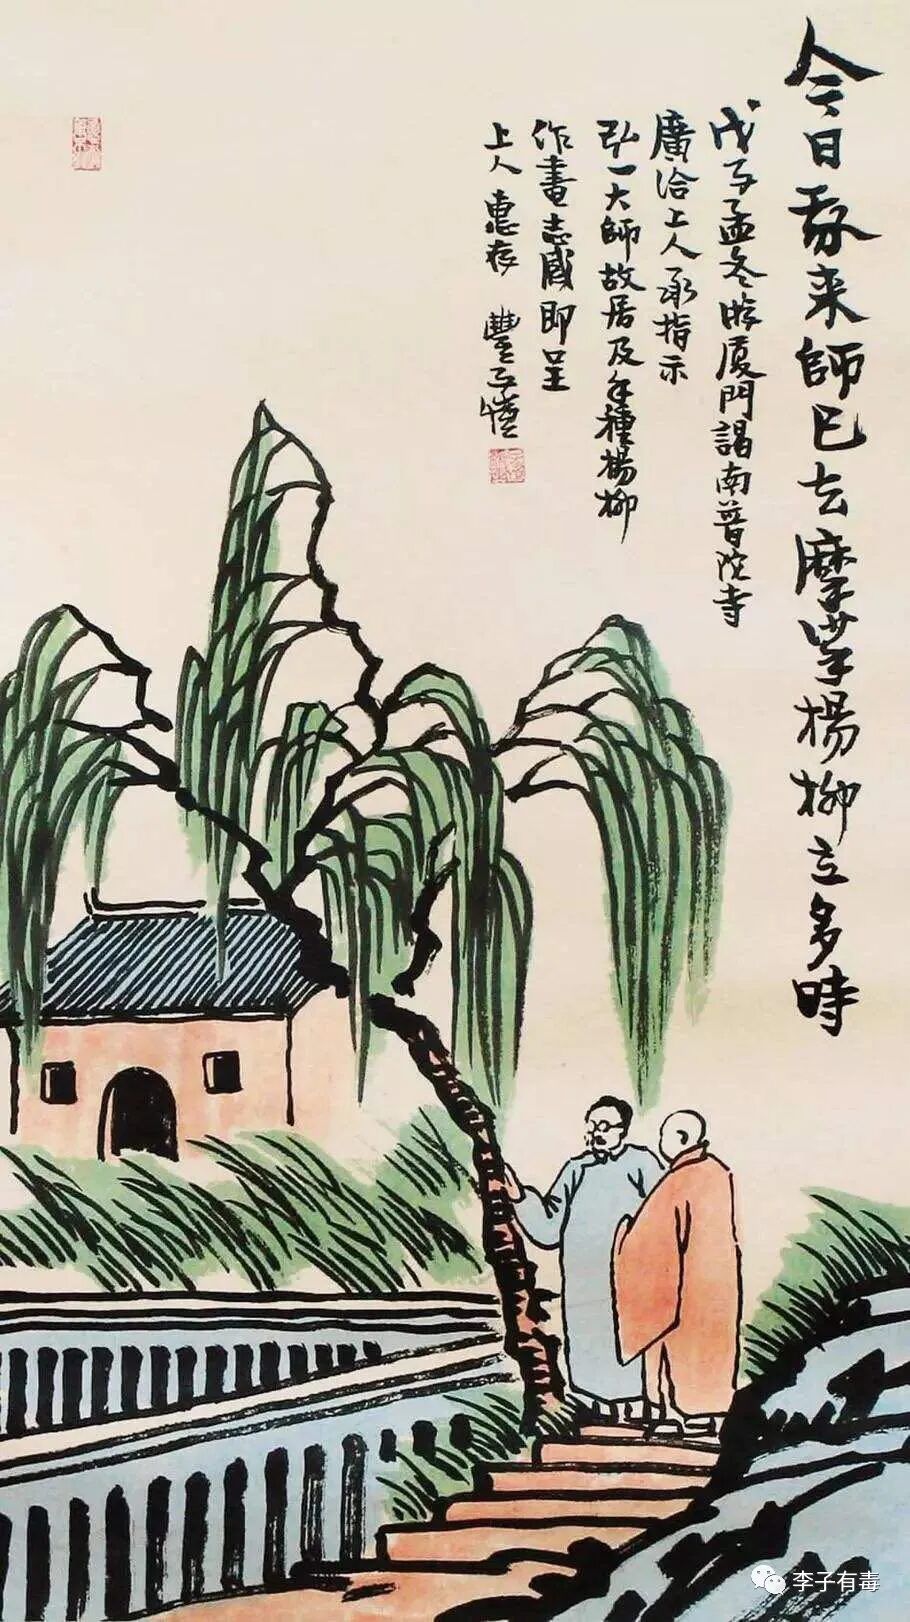 今日我来師已去摩挲楊柳立多時
戊子孟冬游厦門謁南普陀寺
廣洽上人承指示
弘一大師故居及手種楊柳
作畫志感即呈
上人惠存 豐子愷
李子有毒